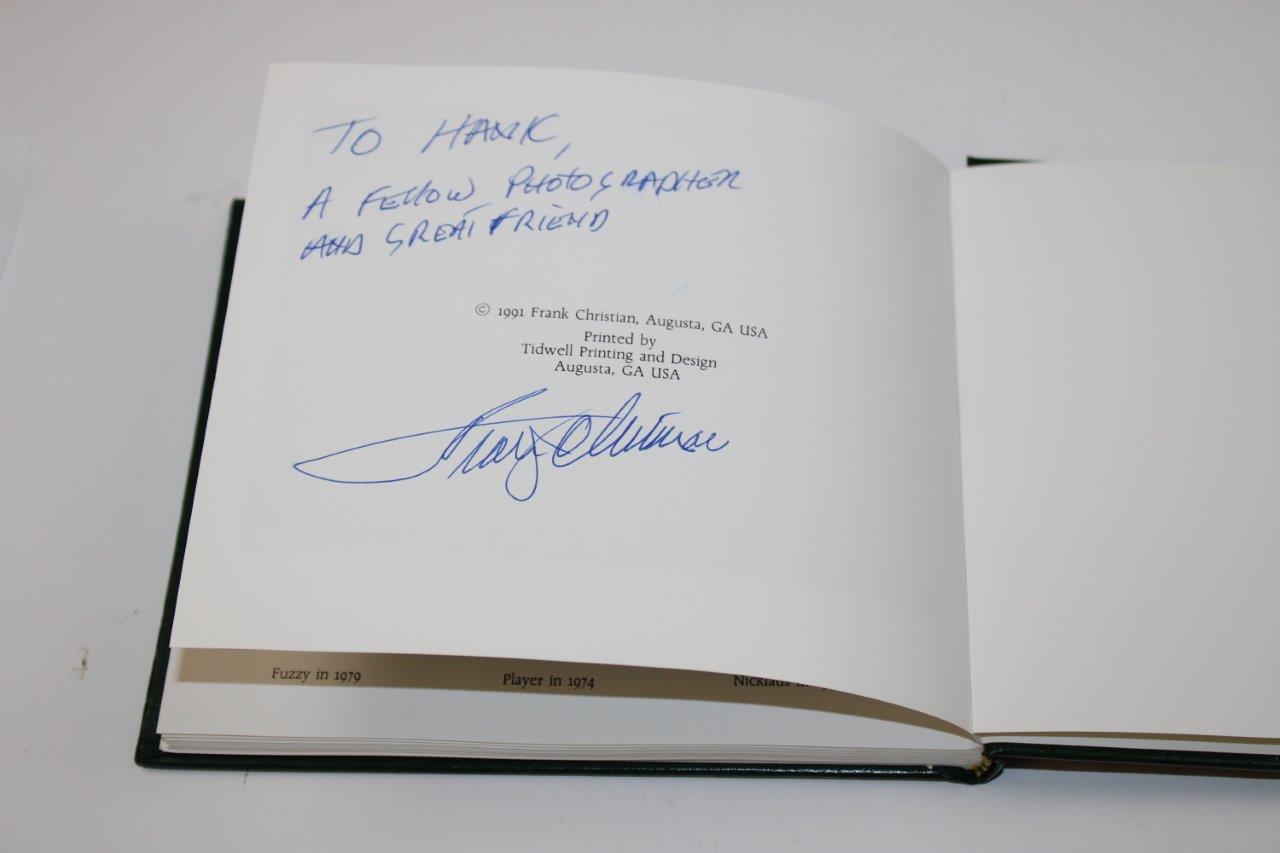 TO HANK,
A FELLOW PHOTOGRAPHER
AND GREAT FRIEND
© 1991 Frank Christian, Augusta, GA USA
Printed by
Tidwell Printing and Design
Augusta, GA USA
Frank Christian
Fuzzy in 1979
Player in 1974
Nicklaus in